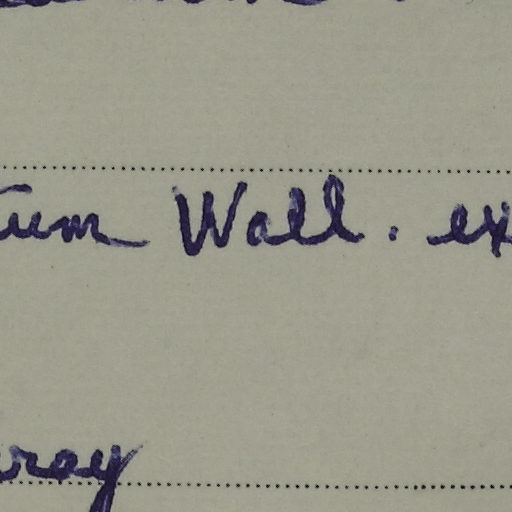 tum Wall. ex
rray